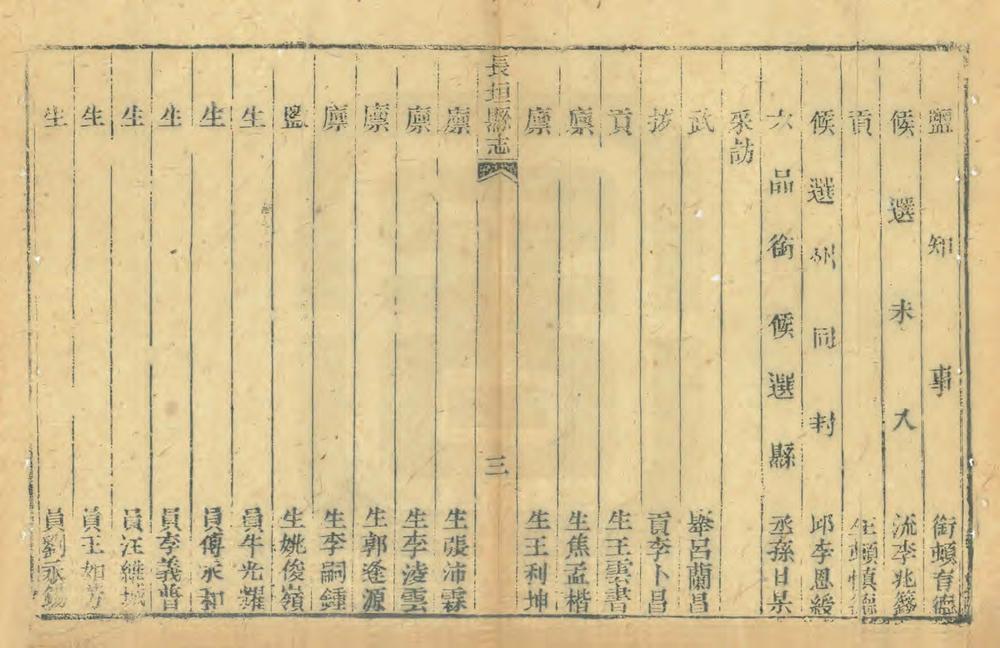 鹽知事銜頓育德
候選未入流李兆籛
貢生頓慎德
候選州同封邱李恩綬
六品銜候選縣丞孫日杲
采訪
武舉呂蘭昌
拔貢李卜昌
貢生王雲書
廪生焦孟楷
廪生王利坤
長垣縣志
三
廪生張沛霖
廪生李淩雲
廪生郭逢源
廪生李嗣鍾
監生姚俊嶺
生員牛光耀
生員傅永和
生員李義普
生員汪維城
生員王如芳
生員劉永錫